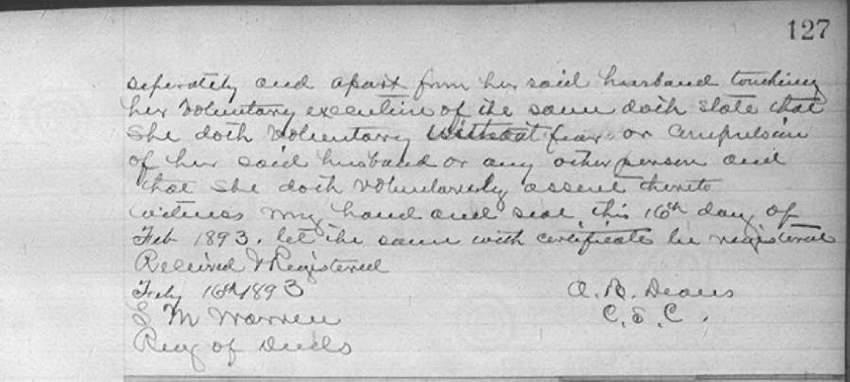 127
seperately and apart from her said husband touching
her Voluntary execution of the same doth state that
She doth Voluntary without fear or Compulsion
of her said husband or any other person and
that She doth Voluntarily assent thereto
witness my hand and seal this 16th day of
Feb 1893. let the same with certificate be registered
Received & Registered
Feby 16th 1893
A. B. Deans
C. S. C.
J M Warren
Reg of Deeds